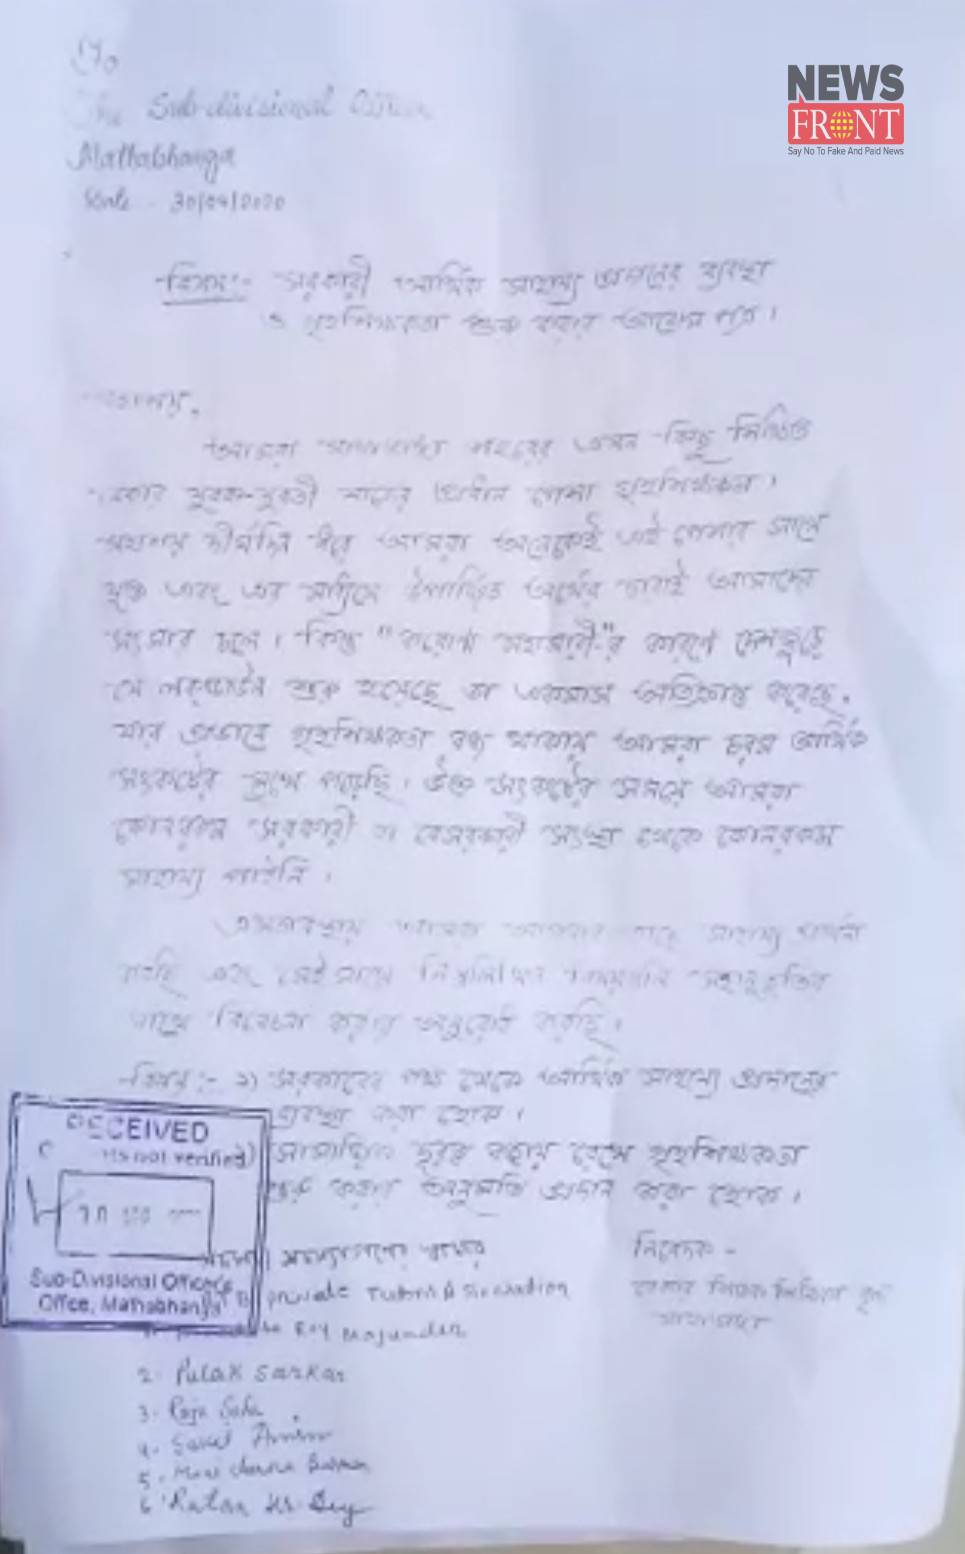 To
The Sub-divisional Officer
Mathabhanga
Date - 30/04/2020
NEWS
FRONT
Say No To Fake And Paid News
বিষয়:- সরকারী আর্থিক সাহায্য প্রদানের ব্যবস্থা
ও গৃহশিক্ষকতা শুরু করার আবেদন পত্র।
মহাশয়,
আমরা মাথাভাঙ্গা শহরের এমন কিছু শিক্ষিত
বেকার যুবক-যুবতী যাদের প্রধান পেশা গৃহশিক্ষকতা।
দীর্ঘদিন ধরে আমরা অনেকেই এই পেশার সাথে
যুক্ত এবং এর মাধ্যমে উপার্জিত অর্থের দ্বারাই আমাদের
সংসার চলে। কিন্তু "করোনা মহামারী"র কারণে দেশজুড়ে
যে লকডাউন শুরু হয়েছে তা একমাস অতিক্রান্ত করেছে,
যার প্রভাবে গৃহশিক্ষকতা বন্ধ থাকায় আমরা চরম আর্থিক
সংকটের মুখে পড়েছি। উক্ত সংকটের সময়ে আমরা
কোনরকম সরকারী বা বেসরকারী সংস্থা থেকে কোনরকম
সাহায্য পাইনি।
এমতাবস্থায় আমরা আপনার কাছে সাহায্য প্রার্থনা
করছি এবং সেই সাথে নিম্নলিখিত বিষয়গুলি সহানুভূতির
সাথে বিবেচনা করার অনুরোধ করছি।
বিষয়:- ১) সরকারের পক্ষ থেকে আর্থিক সাহায্য প্রদানের
ব্যবস্থা করা হোক।
সামাজিক দূরত্ব বজায় রেখে গৃহশিক্ষকতা
শুরু করার অনুমতি প্রদান করা হোক।
RECEIVED
not verified)
Sub-Divisional Officer's
Office, Mathabhanga
সদস্যগণের স্বাক্ষর
private Tutors
Roy Majumder
2. Pulak Sarkar
3. Raja Saha
4.
5. Barman
6. Ratan Kr. Dey
নিবেদক -